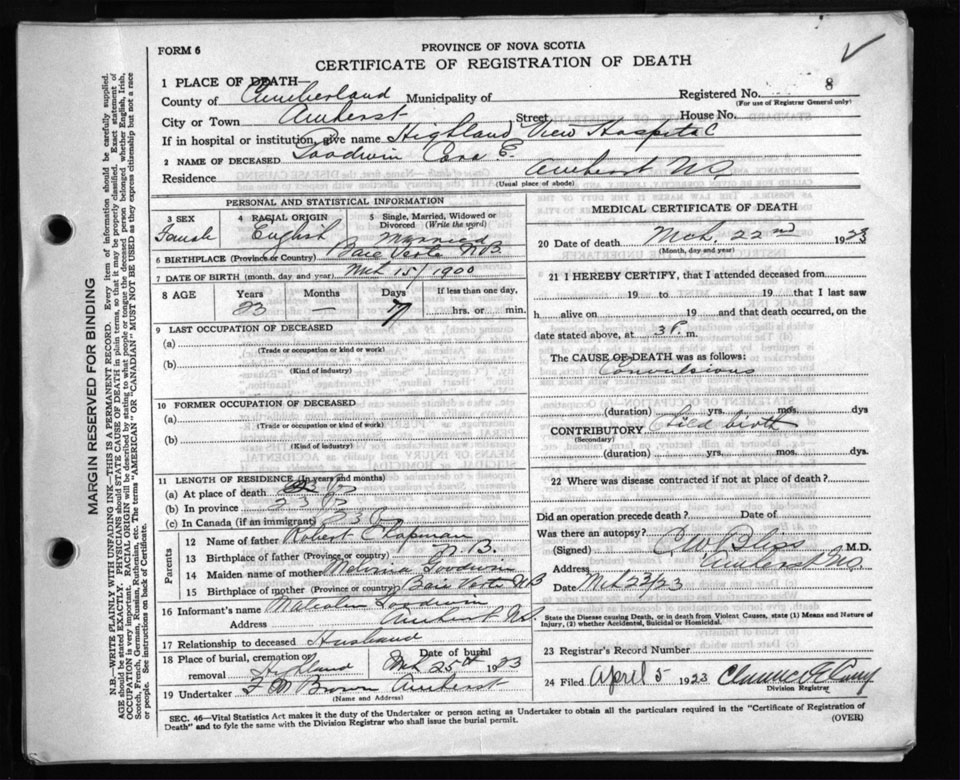 FORM 6
PROVINCE OF NOVA SCOTIA
CERTIFICATE OF REGISTRATION OF DEATH
1 PLACE OF DEATH—
County of Cumberland Municipality of
Registered No. 8
(For use of Registrar General only)
City or Town Amherst Street House No.
If in hospital or institution, give name Highland View Hospital
2 NAME OF DECEASED Goodwin E.
Residence Amherst N.S.
(Usual place of abode)
PERSONAL AND STATISTICAL INFORMATION
3 SEX
Female
4 RACIAL ORIGIN
English
5 Single, Married, Widowed or Divorced (Write the word)
Married
6 BIRTHPLACE (Province or Country) Baie Verte N.B.
7 DATE OF BIRTH (month, day and year) Mch 15/1900
8 AGE
Years
Months
Days
If less than one day,
23 — 7
hrs. or min.
9 LAST OCCUPATION OF DECEASED
(a)
(Trade or occupation or kind of work)
(b)
(Kind of industry)
10 FORMER OCCUPATION OF DECEASED
(a)
(Trade or occupation or kind of work)
(b)
(Kind of industry)
11 LENGTH OF RESIDENCE (In years and months)
(a) At place of death
(b) In province 23
(c) In Canada (if an immigrant) 23
Parents
12 Name of father Robert Chapman
13 Birthplace of father (Province or country) N.B.
14 Maiden name of mother Goodwin
15 Birthplace of mother (Province or country) Baie Verte N.B
16 Informant's name Malcolm Goodwin
Address Amherst N.S.
17 Relationship to deceased Husband
18 Place of burial, cremation or removal Highland
Date of burial Mch 25th 1923
19 Undertaker F M Brown Amherst
(Name and Address)
MEDICAL CERTIFICATE OF DEATH
20 Date of death Mch. 22nd 1923
(Month, day and year)
21 I HEREBY CERTIFY, that I attended deceased from
19 to 19 that I last saw
h alive on 19 and that death occurred, on the
date stated above, at 3 P. m.
The CAUSE OF DEATH was as follows:
Convulsions
(duration) yrs. mos. dys
CONTRIBUTORY Child birth
(Secondary)
(duration) yrs. mos. dys.
22 Where was disease contracted if not at place of death?
Did an operation precede death? Date of
Was there an autopsy?
(Signed) C W Bliss M.D.
Address Amherst N.S.
Date Mch 23/23
State the Disease causing Death, or in death from Violent Causes, state (1) Means and Nature of
Injury, (2) whether Accidental, Suicidal or Homicidal.
23 Registrar's Record Number
24 Filed April 5 1923 Clarence
Division Registrar
SEC. 46—Vital Statistics Act makes it the duty of the Undertaker or person acting as Undertaker to obtain all the particulars required in the "Certificate of Registration of
Death" and to fyle the same with the Division Registrar who shall issue the burial permit.
(OVER)
MARGIN RESERVED FOR BINDING
N.B.—WRITE PLAINLY WITH UNFADING INK—THIS IS A PERMANENT RECORD. Every item of information should be carefully supplied.
AGE should be stated EXACTLY. PHYSICIANS should STATE CAUSE OF DEATH in plain terms, so that it may be properly classified. Exact statement of
OCCUPATION is very important. RACIAL ORIGIN will be described by stating to what people or tongue the deceased person belonged whether English, Irish,
Scotch, French, German, Russian, Ruthenian, etc. The terms "AMERICAN" OR "CANADIAN" MUST NOT BE USED as they express citizenship but not a race
or people. See instructions on back of Certificate.